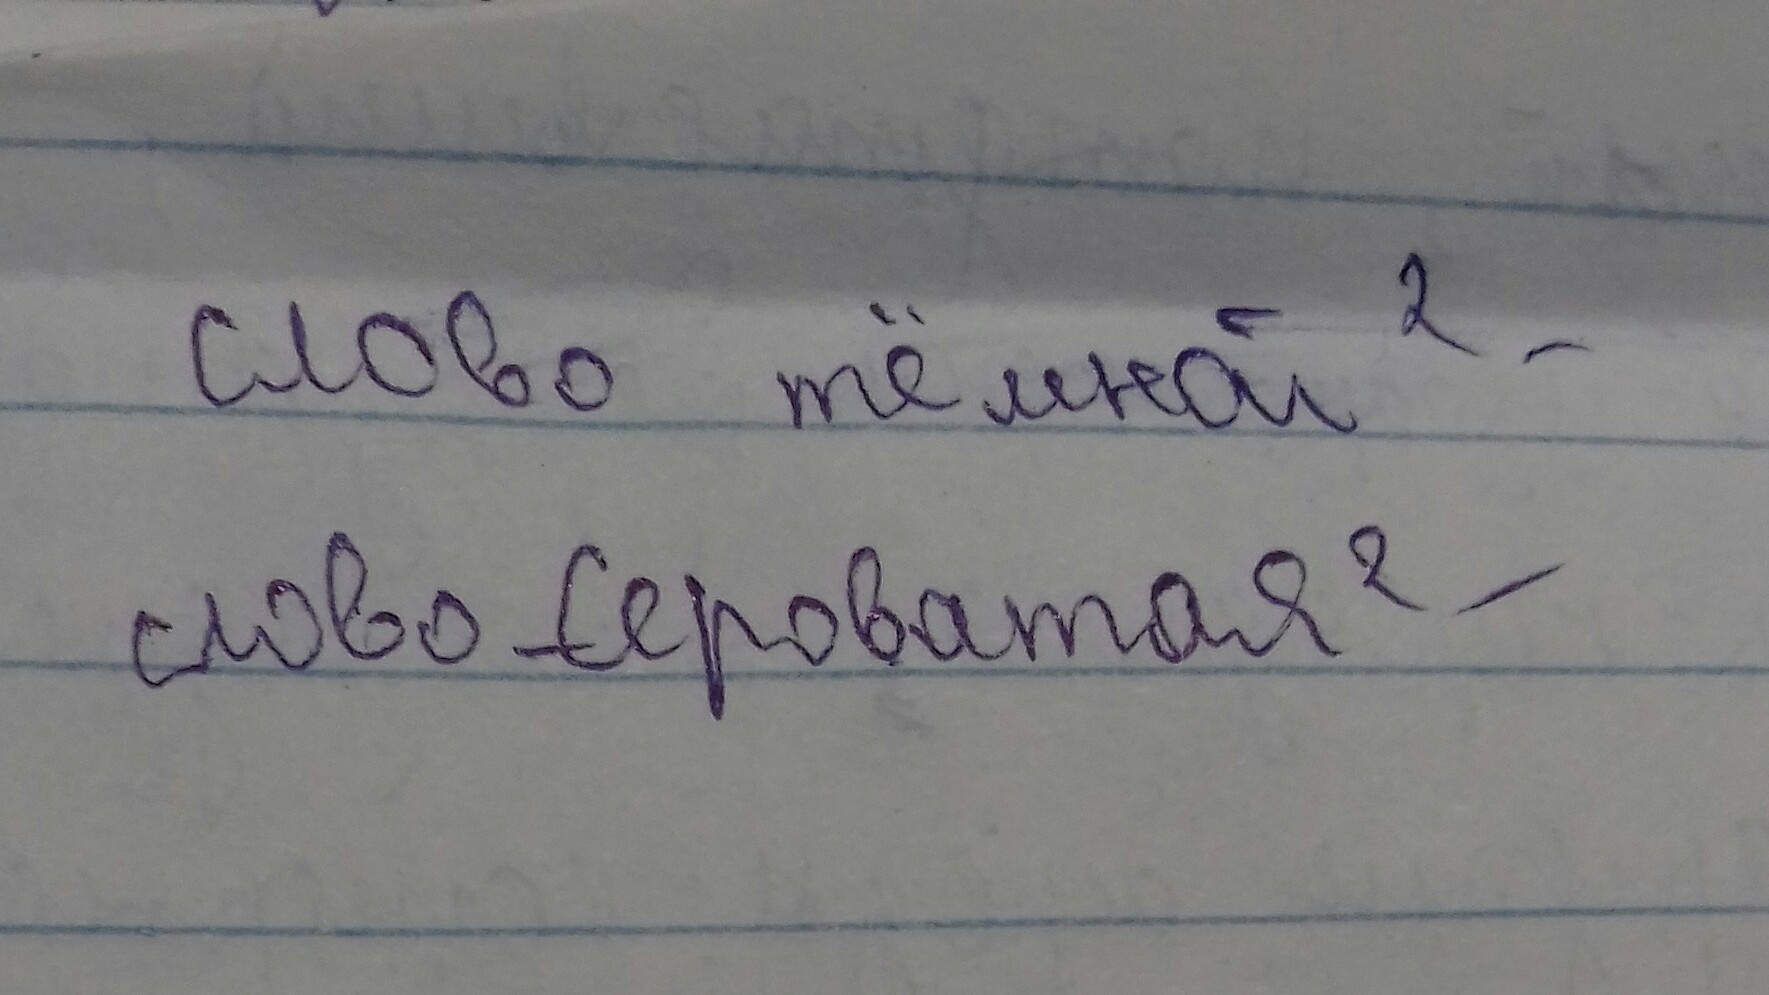 слово тёмной² -
слово Сероватая² -